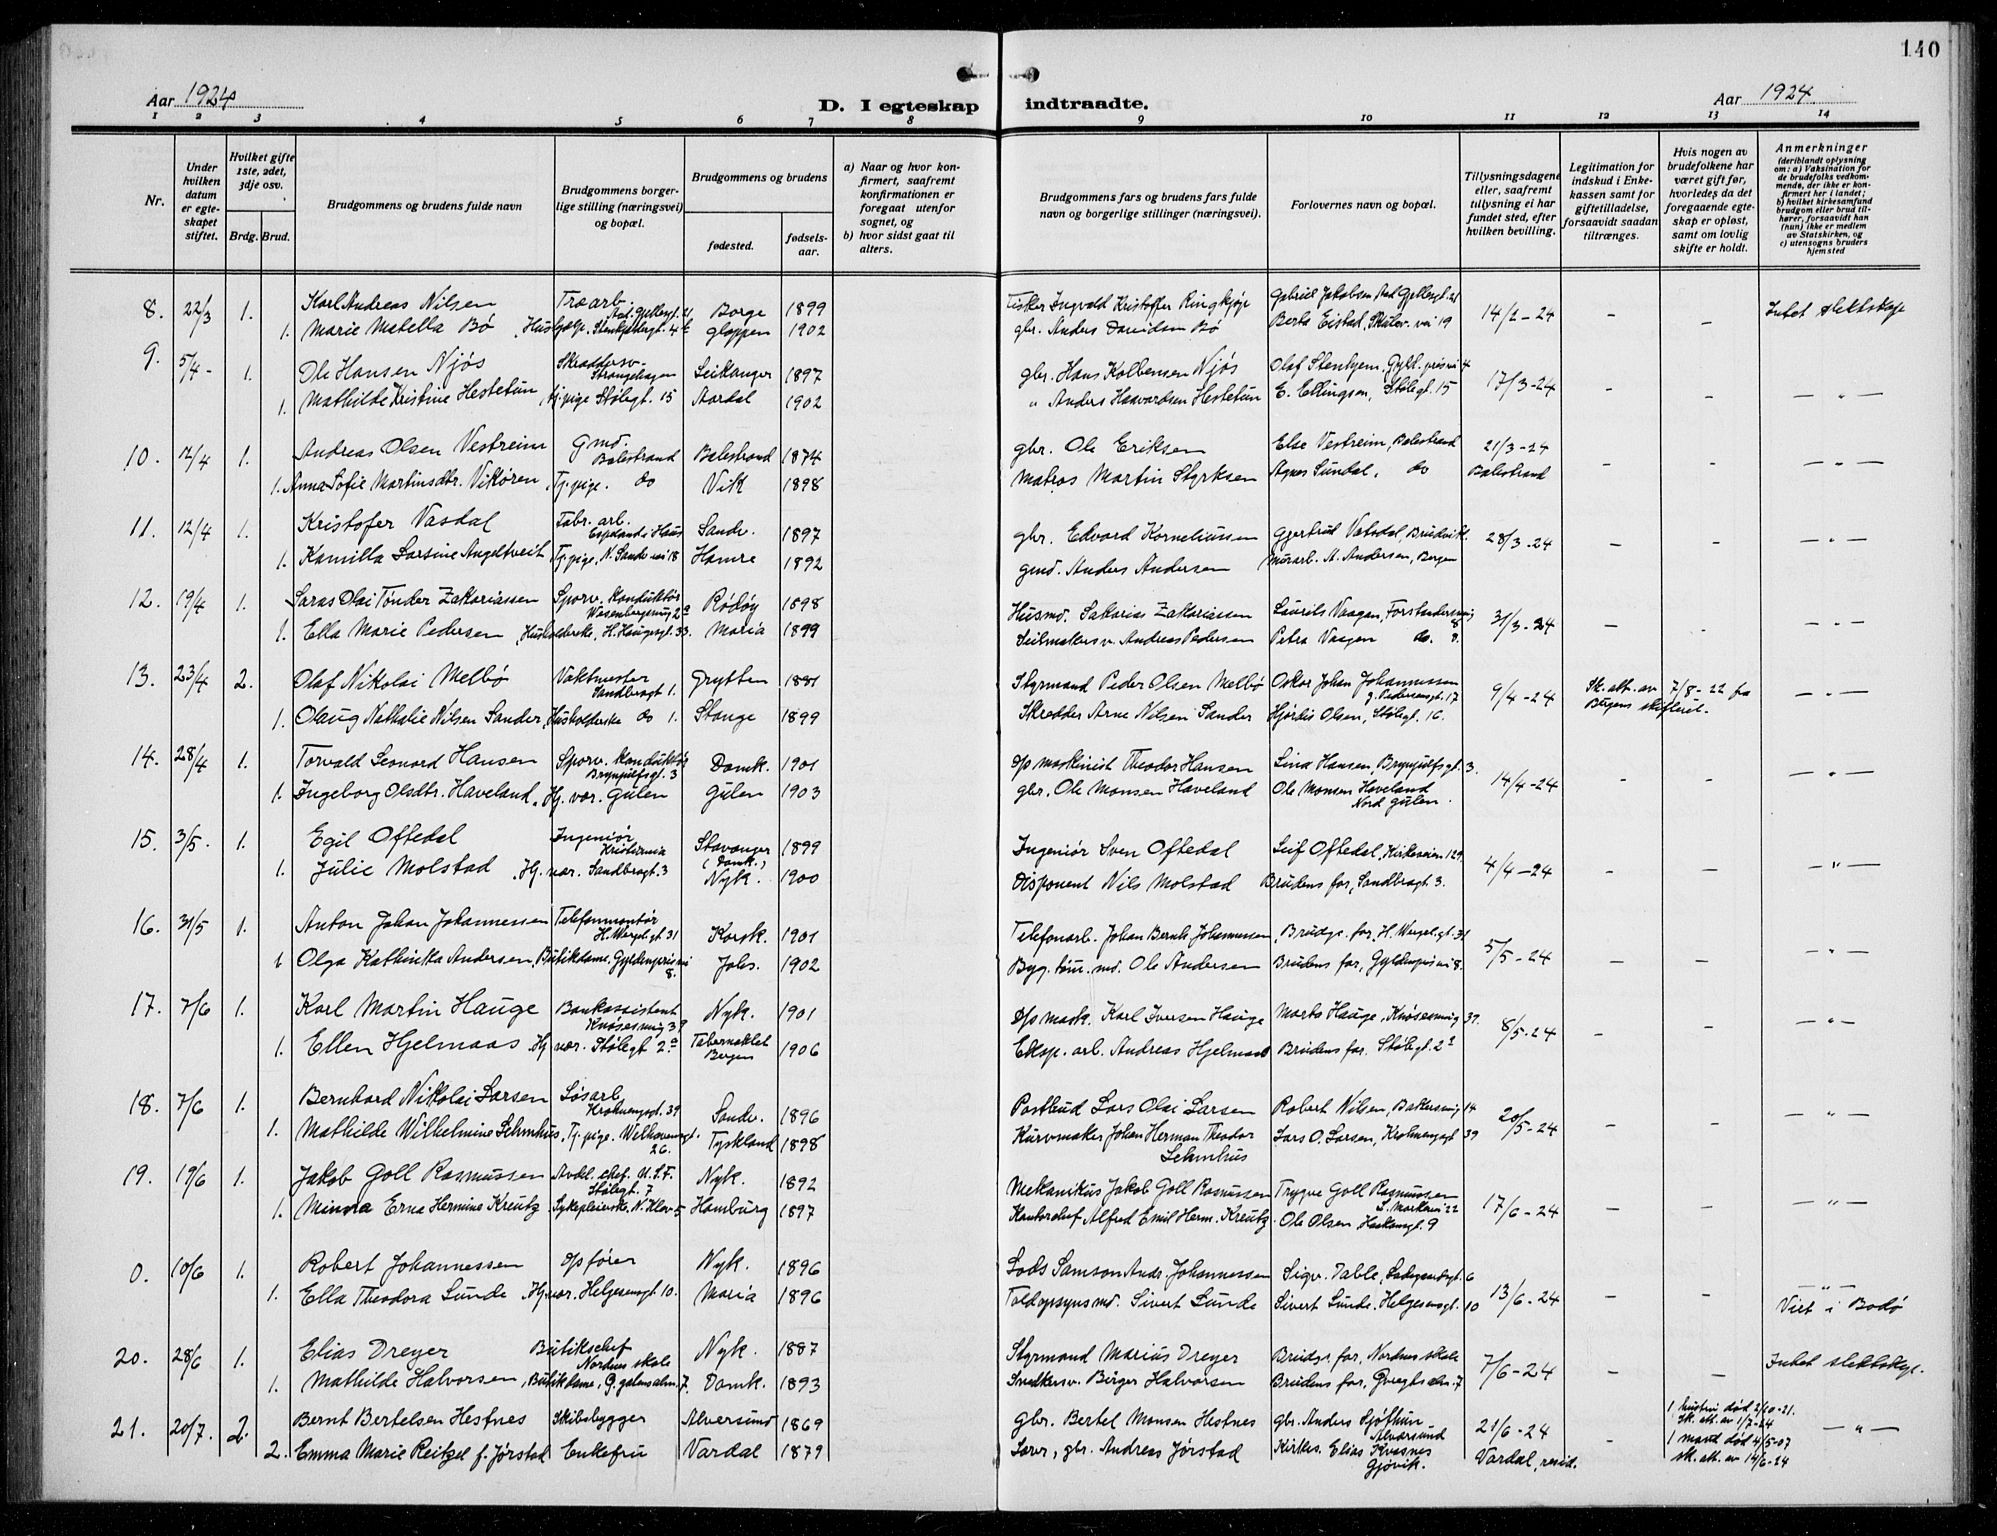 140
Aar 1924
D. I egteskap indtraadte.
Aar 1924.
1 2 3 4 5 6 7 8 9 10 11 12 13 14
Nr.
Under hvilken datum er egteskapet stiftet.
Hvilket gifte 1ste, 2det, 3dje osv.
Brdg. Brud.
Brudgommens og brudens fulde navn
Brudgommens borgerlige stilling (næringsvei) og bopæl.
Brudgommens og brudens
fødested.
fødselsaar.
a) Naar og hvor konfirmert, saafremt konfirmationen er foregaat utenfor sognet, og
b) hvor sidst gaat til alters.
Brudgommens fars og brudens fars fulde navn og borgerlige stillinger (næringsvei).
Forlovernes navn og bopæl.
Tillysningsdagene eller, saafremt tillysning ei har fundet sted, efter hvilken bevilling.
Legitimation for indskud i Enkekassen samt for giftetilladelse, forsaavidt saadan tiltrænges.
Hvis nogen av brudefolkene har været gift før, hvorledes da det foregaaende egteskap er opløst, samt om lovlig skifte er holdt.
Anmerkninger
(deriblandt oplysning om: a) Vaksination for de brudefolks vedkommende, der ikke er konfirmert her i landet; b) hvilket kirkesamfund brudgom eller brud tilhører, forsaavidt han (hun) ikke er medlem av Statskirken, og c) utensogns bruders hjemsted
8. 22/3 1. Karl Andreas Nilsen Træarb. Borge 1899 Fisker Ingvald Kristoffer Ringkjøp Gabriel Jakobsen 14/2 - 24 - - Intet slektskap
1. Marie Matella Bø, Hushjælp. gloppen 1902 gbr. Anders Davidsen Bø Berta Eistad, Skulev. vei 19
9. 5/4 - 1. Ole Hansen Njøs Skræddersv. Strangehagen Leikanger 1897 gbr. Hans Kolbensen Njøs Olaf 17/3-24 - - — „ —
1. Mathilde Kristine Hestetun, tj.pige Stølegt. 15 Aardal 1902 „ Anders Haavardsen Hestetun E. Ellingsen, Stølegt. 15
10. 12/4 1. Andreas Olsen Vestreim Gmd. Balestrand Balestrand 1874 gbr. Ole Eriksen Else Vestreim, Balestrand 21/3-24 - - — „ —
1. Anna Sofie Martinsdtr. Vikøren, Tj.pige. do Vik 1898 Matros Martin Styrksen Agnes Sundal, do Balestrand
11. 12/4 1. Kristofer Vasdal Fabr. arb. Espeland i Haus Sande. 1897 gbr. Edvard Korneliussen Gjertrud Vatsdal, Bruvik. 28/3-24 - - — „ —
1. Kamilla Larsine Angeltveit Tj.pige, N. Sande vei 18 Hamre 1892 gmd. Anders Andersen Murarb. A. Andersen, Bergen
12. 19/4 1. Laras Olai Tønder Zakariassen Sporv. konduktør Rødøy 1898 Husmd. Sakarias Zakariassen Laurits Vaagen, Forstandersmug 8 31/3-24 - - — „ —
1. Ella Marie Pedersen, Husholderske, H. Haugesgt. 33. Maria 1899 Seilmakersv. Andreas Pedersen Petra Vaagen do. 8.
13. 23/4 2. Olaf Nikolai Melbø Vaktmester Sandbrogt 1. Grytten 1881 Styrmand Peder Olsen Melbø Oskar Johan Johannessen 9/4-24 Sk. att. av 7/8-22 fra Bergens skifteret. — „ —
1. Olaug Nathalie Nilsen Sander, Husholderske do 1. Stange 1899 Skredder Arne Nilsen Sander Hjørdis Olsen, Stølegt. 16.
14. 28/4 1. Torvald Leonard Hansen Sporv. konduktør Brynjulfsgt. 3 Domk. 1901 D/p maskinist Theodor Hansen Lina Hansen Brynjulfsgt. 3. 14/4-24 - - — „ —
1. Ingeborg Olsdtr. Haveland, Hj. vær. Gulen Gulen 1903 gbr. Ole Monsen Haveland Ole Monsen Haveland Nord gulen.
15. 3/5. 1. Egil Oftedal Ingeniør Kristiania Stavanger (Domk.) 1899 Ingeniør Sven Oftedal Leif Oftedal, Kirkeveien 129. 4/4-24 - - — „ —
1. Julie Molstad, Hj. vær. Sandbrogt. 3 Nyk. 1900 Disponent Nils Molstad Brudens far, Sandbrogt. 3.
16. 31/5 1. Anton Johan Johannessen Telefonmontør H. Wergel.gt. 31 Korsk. 1901 Telefonarb. Johan Bernh. Johannessen, Brudgs. far, H. Wergel.gt. 31 5/5-24 - - — „ —
1 Olga Kathinka Andersen, Butikdame, Gyldenprisvei 8. Johs. 1902 Byg. tøm. md. Ole Andersen Brudens far, Gyldenprisvei 8.
17. 7/6 1. Karl Martin Hauge Bankassistent Knøsesmug 37 Nyk. 1901 D/p mask. Karl Iversen Hauge Marta Hauge, Knøsesmug 37. 8/5-24 - - — „ —
1. Ellen Hjelmaas, Hj. vær. Stølegt. 2a Tabernaklet Bergen 1906 Eksp. arb. Andreas Hjelmaas Brudens far. Stølegt. 2a
18. 7/6 1. Bernhard Nikolai Larsen Løsarb. Krohnengsgt. 39 Sande. 1896 Postbud Lars Olai Larsen Robert Nilsen, Bakkersmug 14 20/5-24 - - — „ —
1. Mathilde Wilhelmine Lehmhus, Tj.pige. Welhavensgt. 26. Tyskland 1898 Kurvmaker Johan Herman Theodor Lehmhus Lars O. Larsen, Krohnengsgt 39
19. 19/6 1. Jakob Goll Rasmussen Avdel. chef. U.S.F. Stølegt. 7 Nyk. 1892 Mekanikus Jakob Goll Rasmussen Trygve Goll Rasmussen L. Markevei 22 17/6-24 - - — „ —
1. Minna Erna Hermine Kreutz, Sykepleierske, N. Klev 5 Hamburg 1897 Kontorchef Alfred Emil Herm. Kreutz. Ole Olsen Haakonsgt. 9
0. 10/6 1. Robert Johannessen D/p fører Nyk. 1896 Lods Samson Andr. Johannessen Sigv. Dable, Ladegaardsgt. 6 13/6-24 - - — „ — Viet i Bodø
1. Ella Theodora Sunde, Hj. vær. Helgesensgt 10. Maria 1896 Toldopsynsmd. Sivert Sunde Sivert Sunde. Helgesensgt. 10
20. 28/6 1. Elias Dreyer Butikschef Nordnes skole Nyk. 1887 Styrmand Marius Dreyer Brudgs. far, Nordnes skole 7/6-24 - - Intet slektskap.
1. Mathilde Halvorsen, Butikdame, 7. Domk. 1893 Snekkersv. Birger Halvorsen Brudens far, 7
21. 20/7. 2. Bernt Bertelsen Hestnes Skibsbygger Alversund 1869 Gbr. Bertel Monsen Hestnes gbr. Anders Sjøthun Alversund 21/6-24 - 1 hustru død 2/10-21. Sk. att. av 1/7-24 — „ —
2. Emma Marie Reitzel f. Jørstad Enkefru Vardal 1879 Lærer, gbr. Andreas Jørstad Kirkes. Elias Kvasnes Gjøvik. Vardal, resid. 1 mand død 4/5-07 sk. att. av 14/6-24